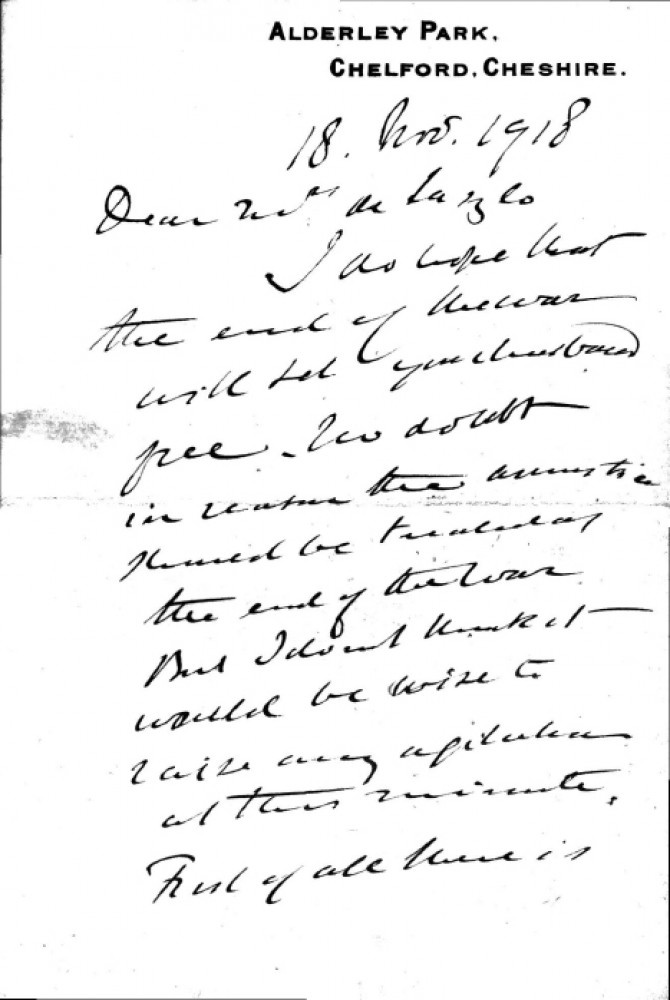 ALDERLEY PARK,
CHELFORD, CHESHIRE.
18. Nov. 1918
Dear Mrs de Laszlo
I do hope that
the end of the war
will set your husband
free. No doubt
in reason the armistice
should be treated as
the end of the war
But I don't think it
would be wise to
raise any agitation
at this minute.
First of all there is